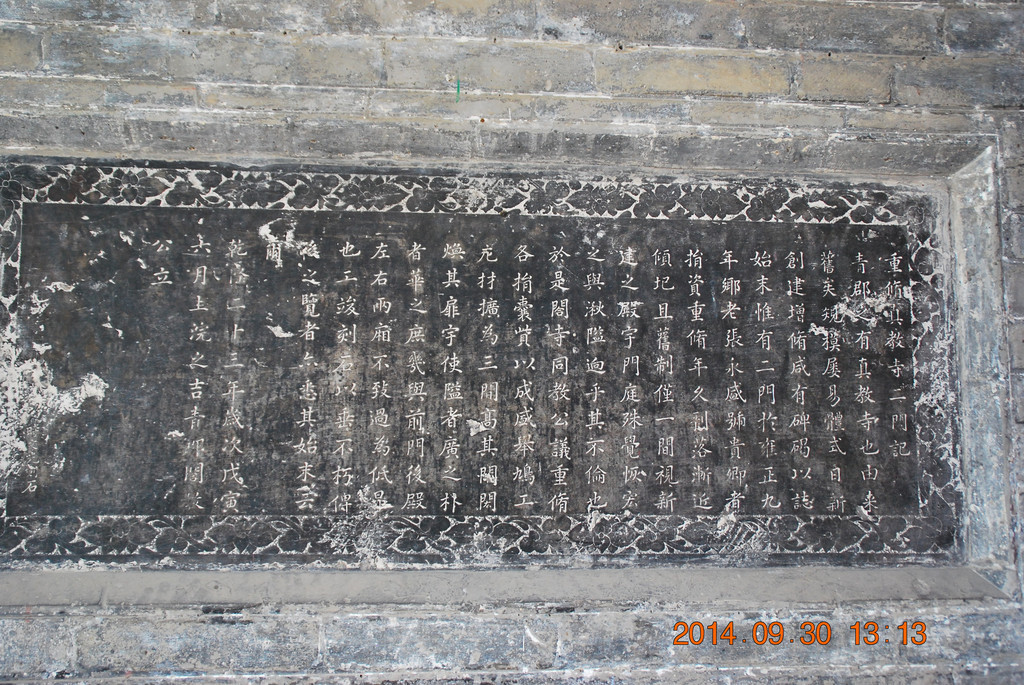 重脩真教寺二門記
青郡之有真教寺也由來
舊矣規模屢易體式日新
創建增脩咸有碑碣以誌
始末惟有二門於雍正九
年鄉老張永盛號貴卿者
捐資重脩年久剝落漸近
傾圮且舊制僅一間視新
建之殿宇門庭殊覺恢宏
之與湫隘逈乎其不倫也
於是閤寺同教公議重脩
各捐囊貲以成盛舉鳩工
庀材擴為三間高其閈閎
煥其扉宇使隘者廣之朴
者華之庶幾與前門後殿
左右兩廂不致過為低昂
也工竣刻石以垂不朽俾
後之覽者亦悉其始末云
爾
乾隆二十三年歲次戊寅
六月上浣之吉青郡閤教
公立
石
2014.09.30 13:13